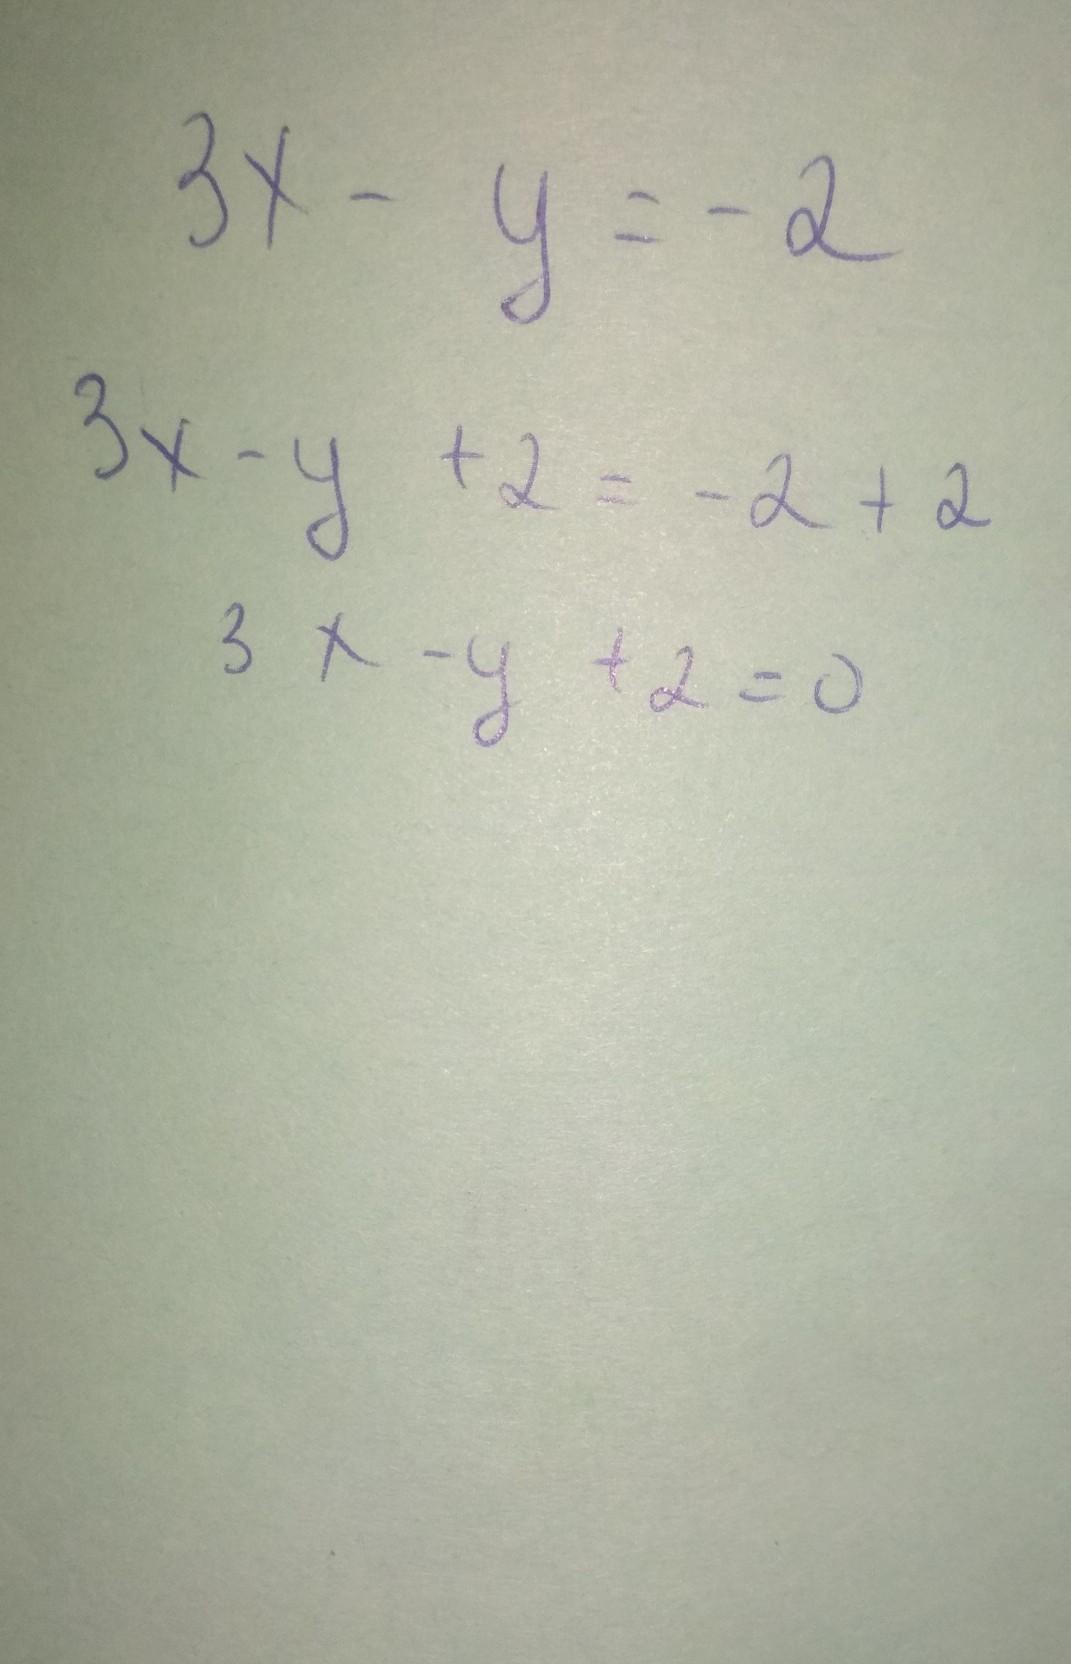 3x - y = -2
3x - y + 2 = -2 + 2
3x - y + 2 = 0